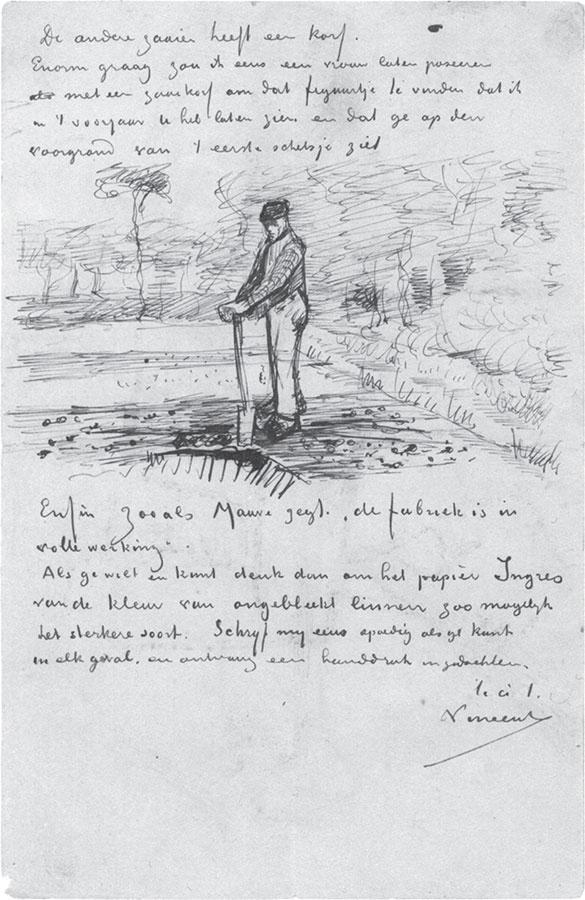 De andere zaaier heeft een korf.
Enorm graag zou ik eens een vrouw laten poseeren
met een zaaikorf om dat figuurtje te vinden dat ik
in 't voorjaar U heb laten zien en dat ge op den
voorgrond van 't eerste schetsje ziet
Enfin zooals Mauve zegt. „de fabriek is in
volle werking".
Als ge wilt en kunt denk dan om het papier Ingres
van de kleur van ongebleekt linnen zoo mogelijk
het sterkere soort. Schrijf my eens spoedig als ge kunt
in elk geval. en ontvang een handdruk in gedachten.
t. à t.
Vincent